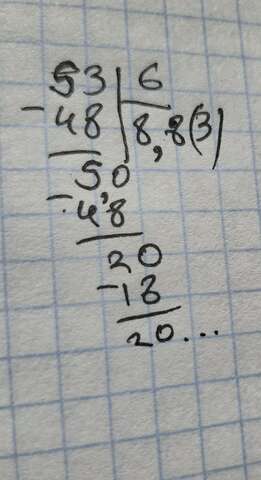 53 6
- 48 8,8(3)
50
- 48
20
- 18
20...